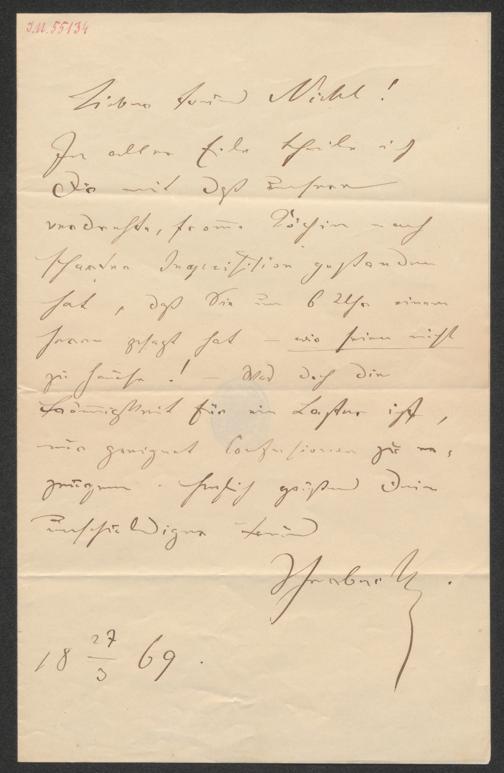 I.N. 55134
Lieber Freund Nickel!
In aller Eile theile ich
Dir mit daß unsere
verdrehte, fromme Köchin nach
scharfer Inquisition gestanden
hat, daß Sie um 6 Uhr einem
Herrn gesagt hat – wir seien nicht
zu Hause! – Was doch die
Frömmigkeit für ein Laster ist,
nur geeignet Confusionen zu er-
zeugen. Herzlich grüßend Dein
unschuldiger Freund
Herbeck.
18 27/3 69.